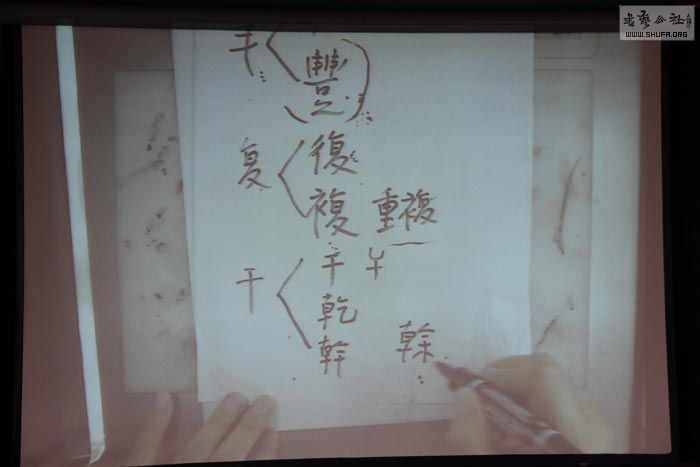 書藝公社
WWW.SHUFA.ORG
丰
豐
復
复
複 重複
干
干
乾
幹 榦